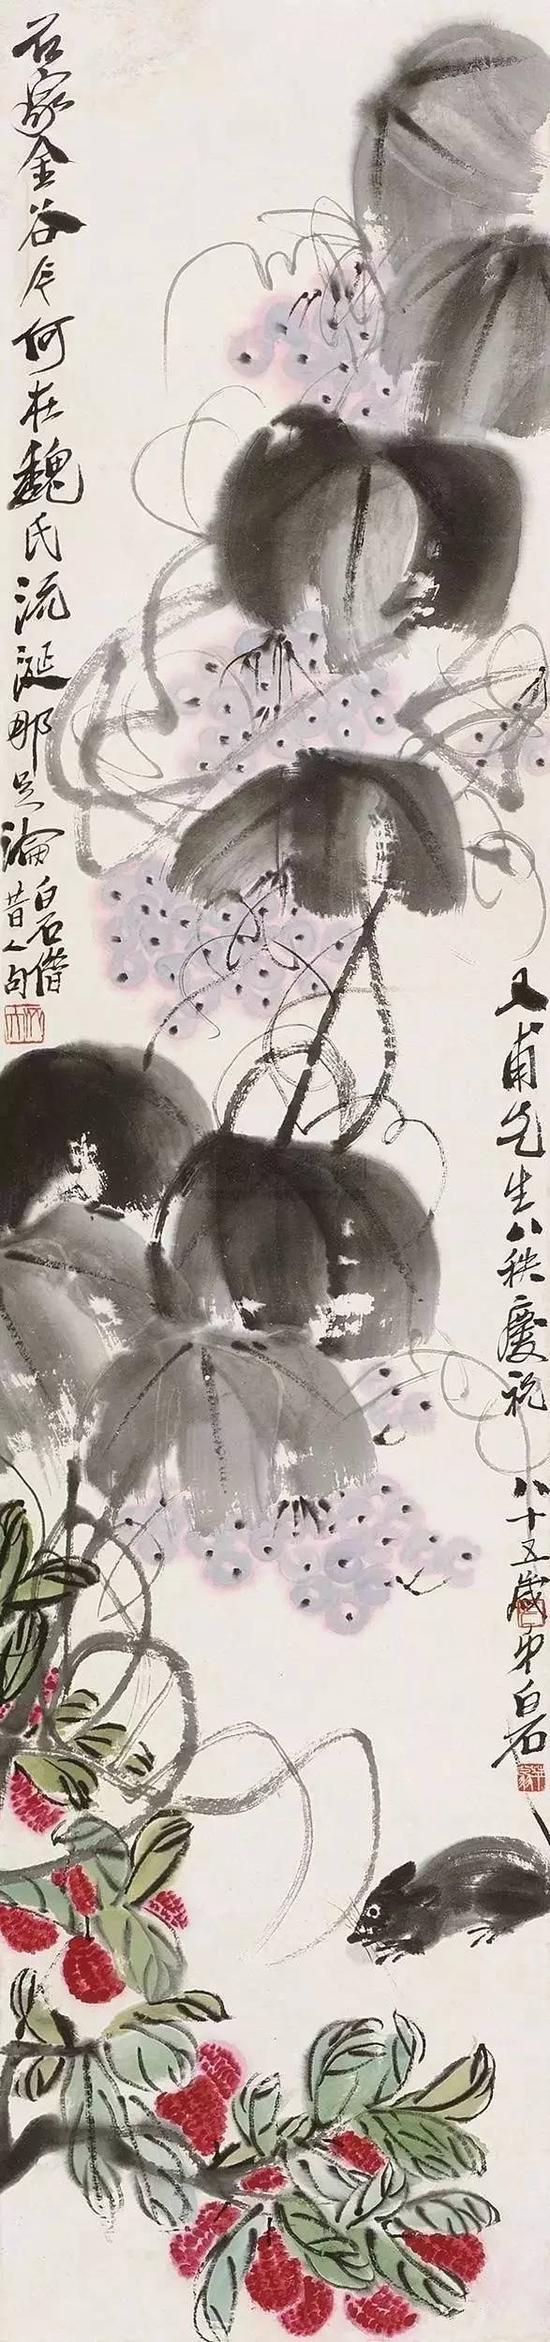 又甫先生八秩慶祝 八十五歲弟白石
石家金谷今何在魏氏流涎那足論
白石借
昔人句